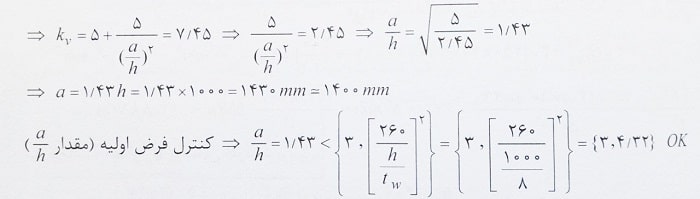 ⇒ k_v = ۵ + ۵/(a/h)^۲ = ۷/۴۵ ⇒ ۵/(a/h)^۲ = ۲/۴۵ ⇒ a/h = √(۵/۲/۴۵) = ۱/۴۳
⇒ a = ۱/۴۳ h = ۱/۴۳ × ۱۰۰۰ = ۱۴۳۰ mm ≃ ۱۴۰۰ mm
کنترل فرض اولیه (مقدار a/h) ⇒ a/h = ۱/۴۳ < {۳ , [۲۶۰/(h/t_w)]^۲} = {۳ , [۲۶۰/(۱۰۰۰/۸)]^۲} = {۳, ۴/۳۲} OK